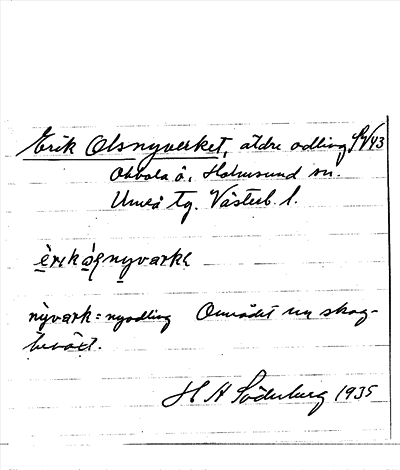 Erik Olsnyverket, äldre odling
Obbola ö, Holmsund sn.
Umeå tg. Västerb. l.
nyvark = nyodling Området nu skog-
beväxt.
H A Söderberg 1935